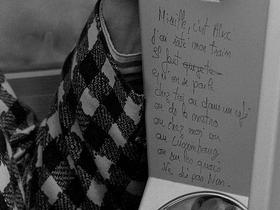 Mireille, c'est Alex
j'ai raté mon train
Il faut
qu'on se parle
chez toi ou dans un café
ou de le métro
ou chez moi ou
au
ou sur les quais
Ne dis pas Non.